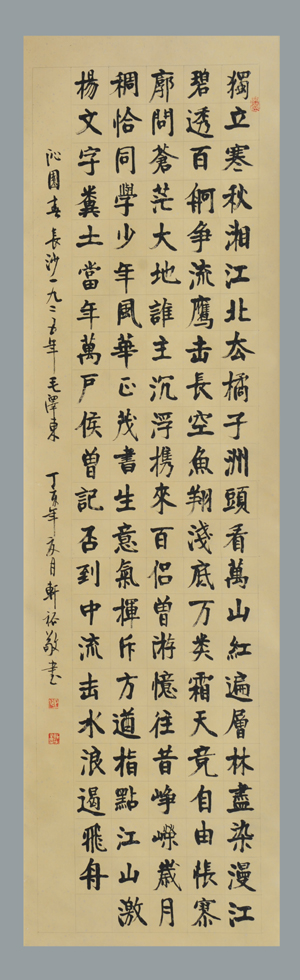 獨立寒秋湘江北去橘子洲頭看萬山紅遍層林盡染漫江
碧透百舸争流鷹击長空魚翔淺底万类霜天竞自由悵寥
廓問蒼茫大地誰主沉浮携來百侣曾游憶往昔崢嶸歲月
稠恰同學少年風華正茂書生意氣揮斥方遒指點江山激
楊文字糞土當年萬户侯曾記否到中流击水浪遏飛舟
沁園春長沙一九二五年毛澤東 丁亥年月軒裕敬書